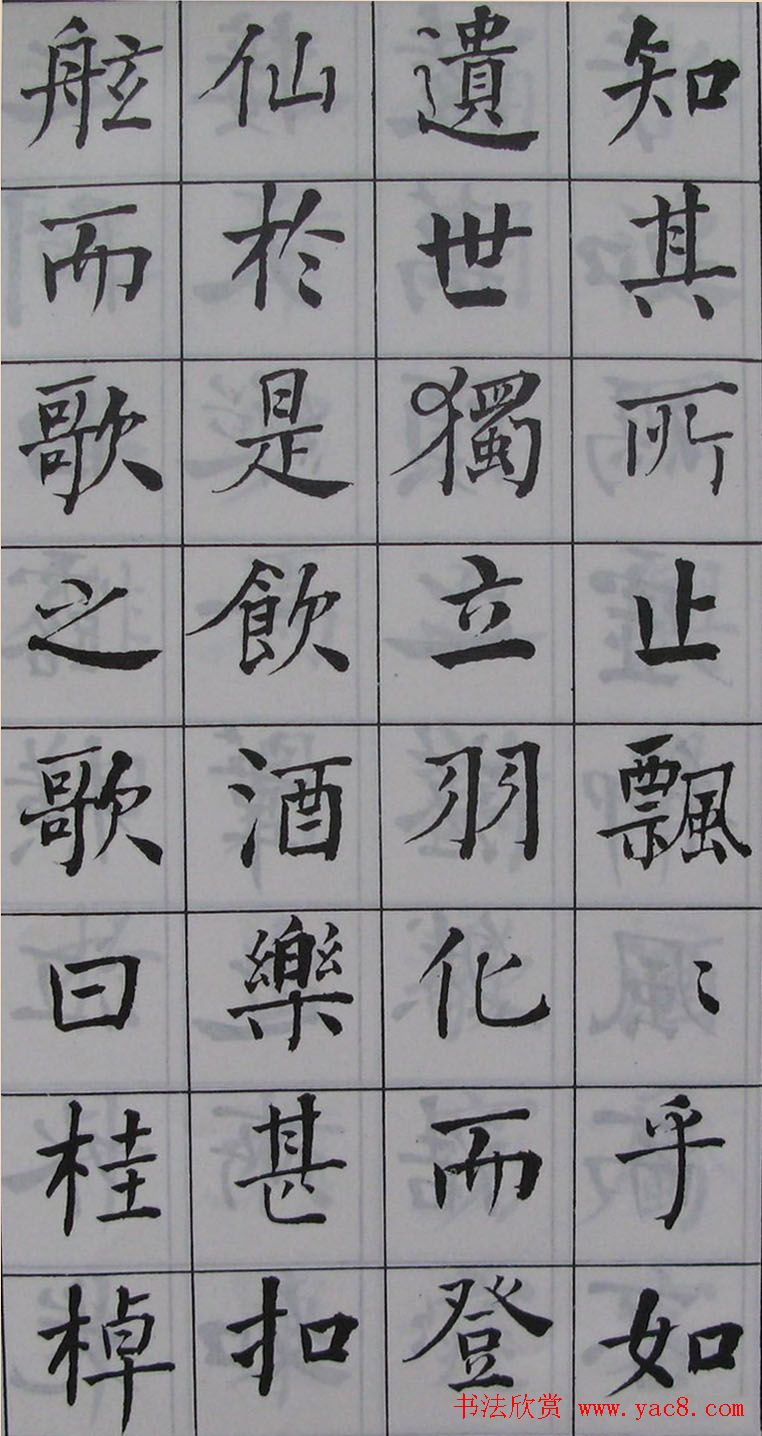 知其所止飄〻乎如
遺世獨立羽化而登
仙於是飲酒樂甚扣
舷而歌之歌曰桂棹
书法欣赏 www.yac8.com